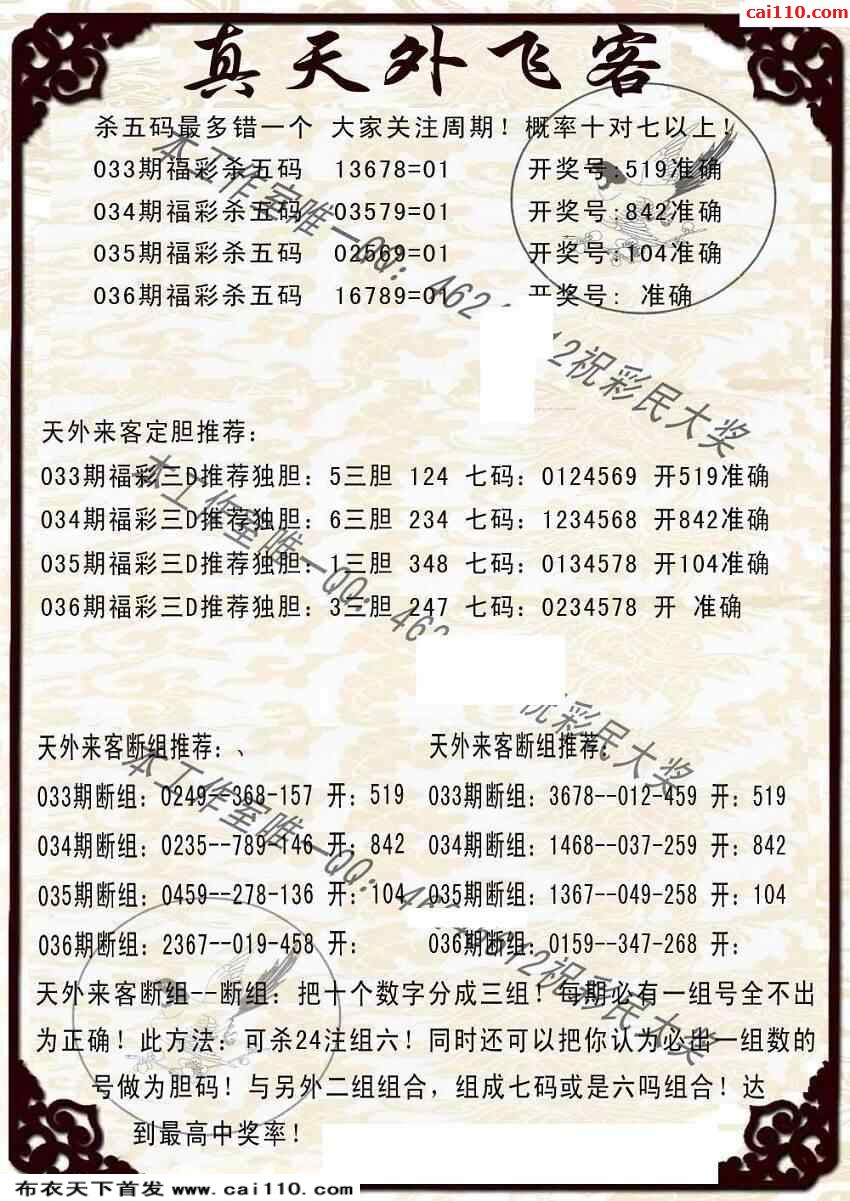 cai110.com
真天外飞客
杀五码最多错一个 大家关注周期！概率十对七以上！
033期福彩杀五码 13678=01 开奖号:519准确
034期福彩杀五码 03579=01 开奖号:842准确
035期福彩杀五码 02569=01 开奖号:104准确
036期福彩杀五码 16789=01 开奖号: 准确
天外来客定胆推荐：
033期福彩三D推荐独胆：5三胆 124 七码：0124569 开519准确
034期福彩三D推荐独胆：6三胆 234 七码：1234568 开842准确
035期福彩三D推荐独胆：1三胆 348 七码：0134578 开104准确
036期福彩三D推荐独胆：3三胆 247 七码：0234578 开 准确
天外来客断组推荐：、 天外来客断组推荐：
033期断组：0249--368-157 开：519 033期断组：3678--012-459 开：519
034期断组：0235--789-146 开：842 034期断组：1468--037-259 开：842
035期断组：0459--278-136 开：104 035期断组：1367--049-258 开：104
036期断组：2367--019-458 开： 036期断组：0159--347-268 开：
天外来客断组--断组：把十个数字分成三组！每期必有一组号全不出
为正确！此方法：可杀24注组六！同时还可以把你认为必出一组数的
号做为胆码！与另外二组组合，组成七码或是六吗组合！达
到最高中奖率！
本工作室唯一QQ：462 12祝彩民大奖
本工作室唯一QQ：462 祝彩民大奖
本工作室唯一QQ：46 12祝彩民大奖
布衣天下首发 www.cai110.com